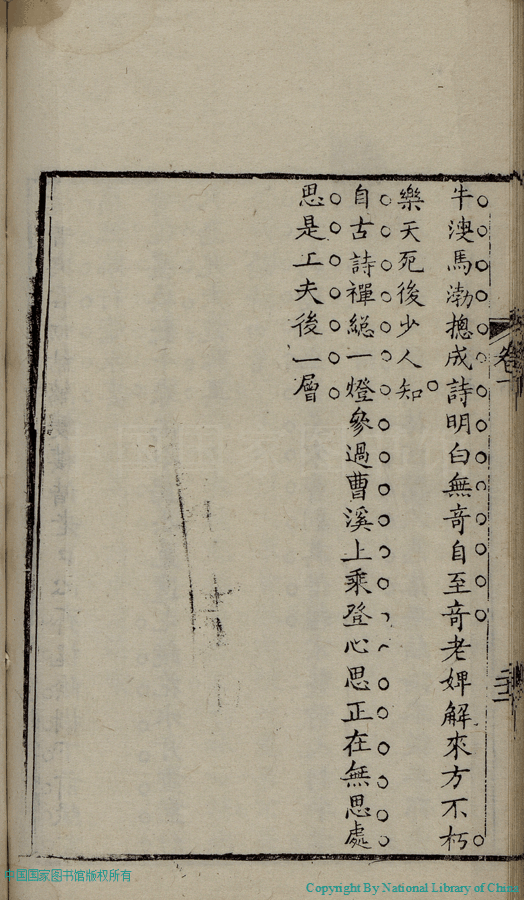 牛溲馬渤摠成詩明白無竒自至竒老婢解來方不朽
樂天死後少人知
自古詩禪総一燈參過曹溪上乘登心思正在無思處
思是工夫後一層
卷十
二十二
中国国家图书馆版权所有
Copyright By National Library of China